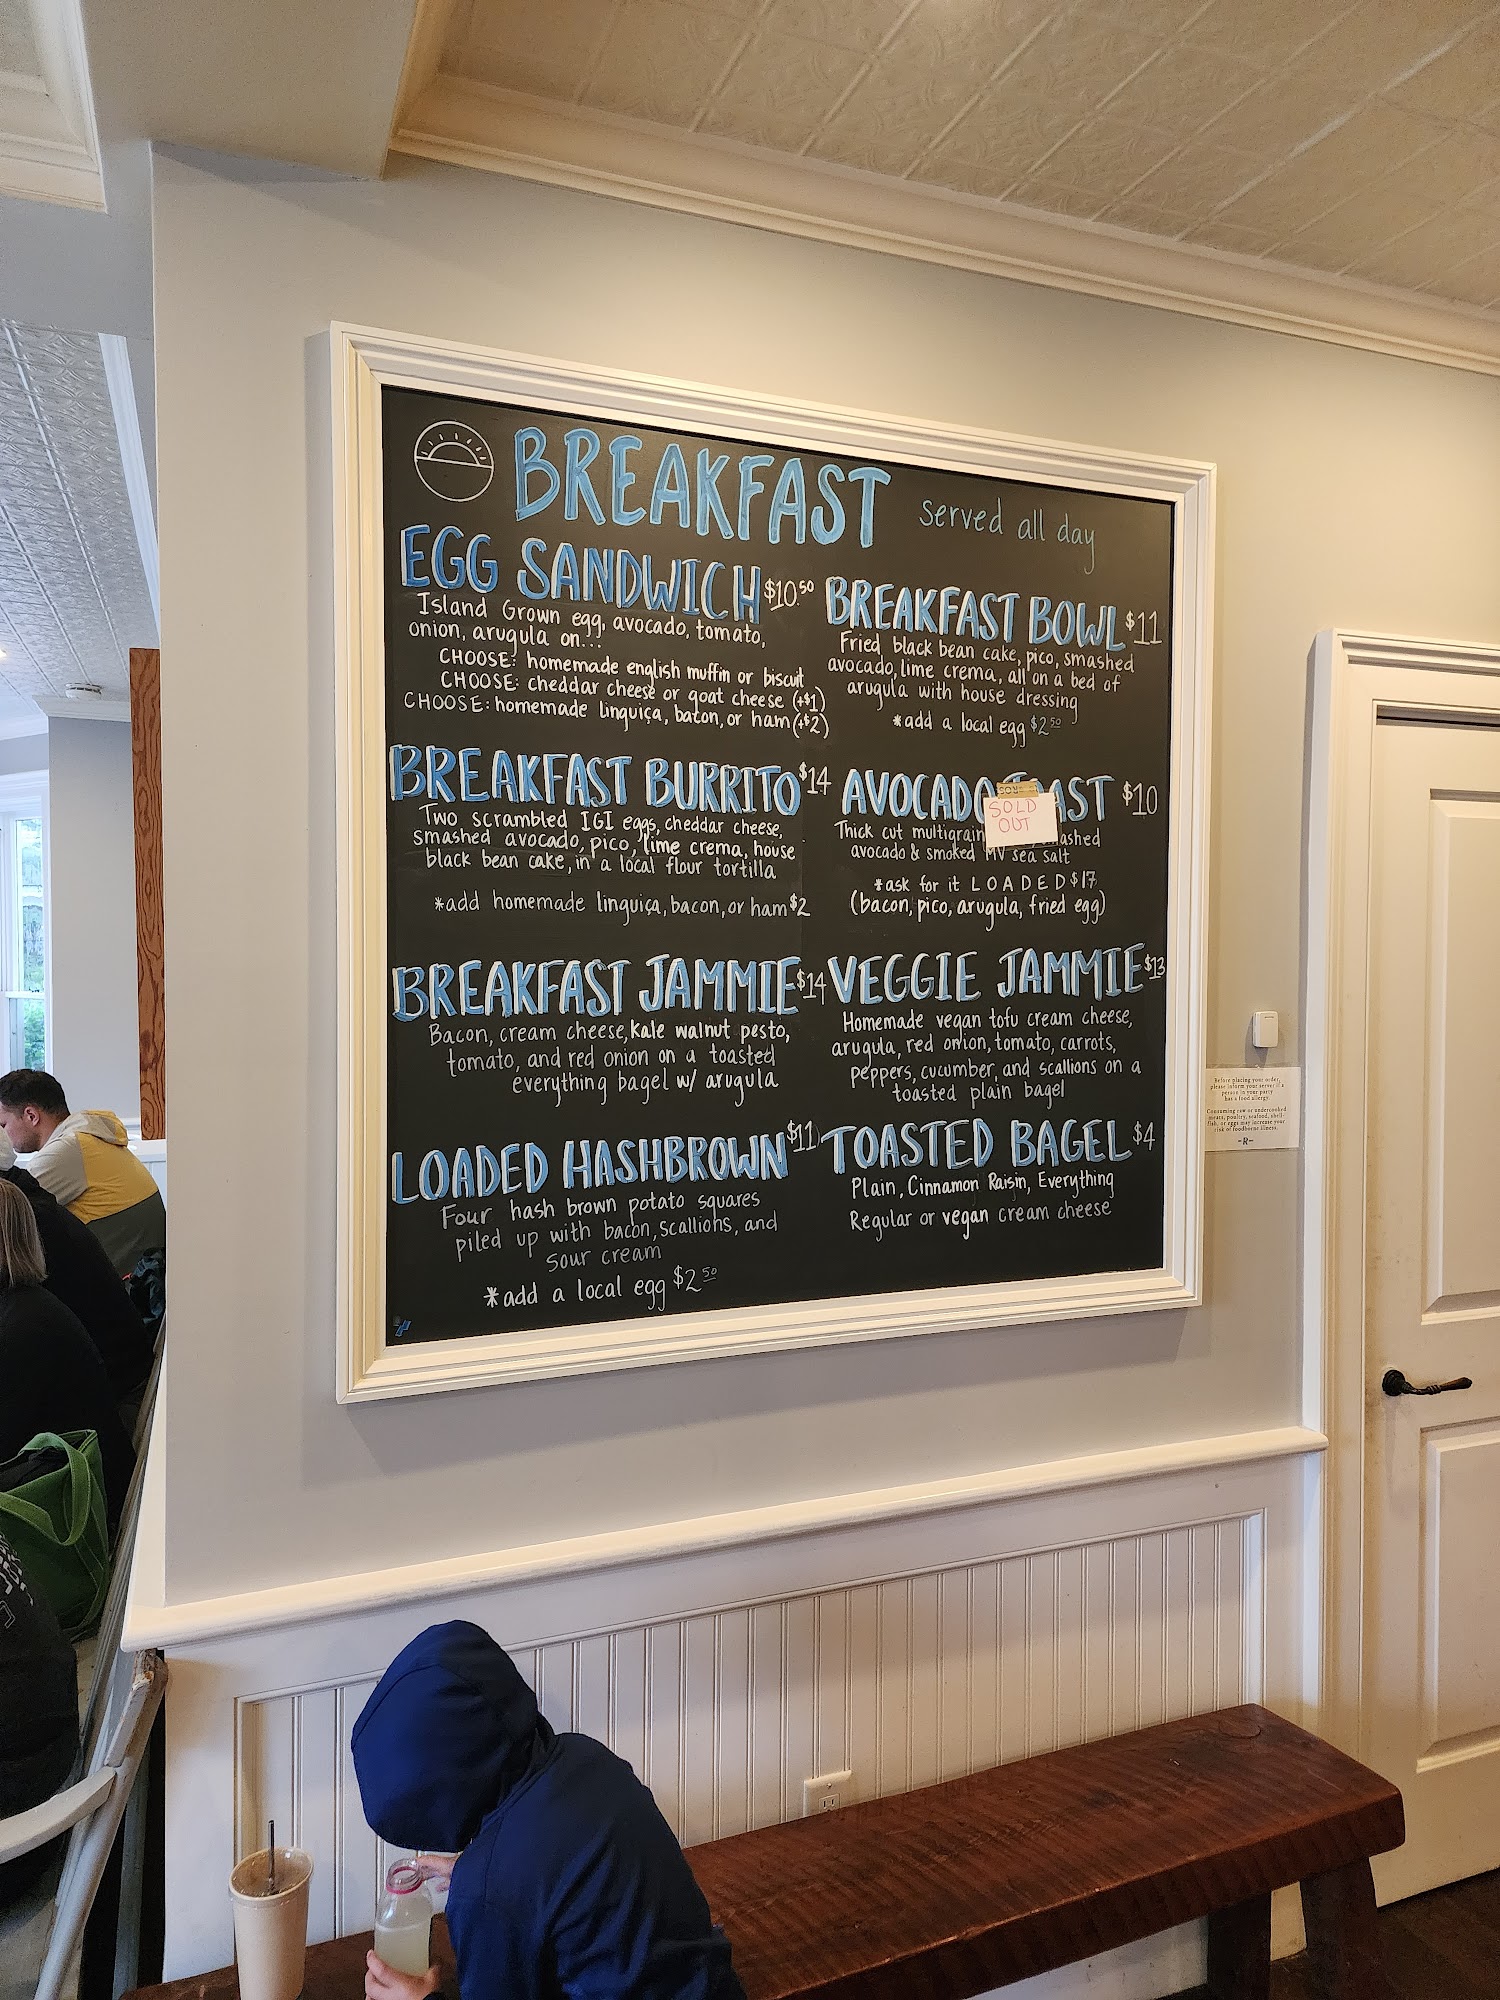 BREAKFAST served all day
EGG SANDWICH $10.50
Island Grown egg, avocado, tomato,
onion, arugula on...
CHOOSE: homemade english muffin or biscuit
CHOOSE: cheddar cheese or goat cheese (+$1)
CHOOSE: homemade linguiça, bacon, or ham (+$2)
BREAKFAST BURRITO $14
Two scrambled IGI eggs, cheddar cheese,
smashed avocado, pico, lime crema, house
black bean cake, in a local flour tortilla
*add homemade linguiça, bacon, or ham $2
BREAKFAST JAMMIE $14
Bacon, cream cheese, kale walnut pesto,
tomato, and red onion on a toasted
everything bagel w/ arugula
LOADED HASHBROWN $11
Four hash brown potato squares
piled up with bacon, scallions, and
sour cream
*add a local egg $2.50
BREAKFAST BOWL $11
Fried black bean cake, pico, smashed
avocado, lime crema, all on a bed of
arugula with house dressing
*add a local egg $2.50
AVOCADO TOAST $10
SOLD
OUT
Thick cut multigrain
avocado & smoked MV sea salt
*ask for it LOADED $17
(bacon, pico, arugula, fried egg)
VEGGIE JAMMIE $13
Homemade vegan tofu cream cheese,
arugula, red onion, tomato, carrots,
peppers, cucumber, and scallions on a
toasted plain bagel
TOASTED BAGEL $4
Plain, Cinnamon Raisin, Everything
Regular or vegan cream cheese
Before placing your order,
please inform your server if a
person in your party
has a food allergy.
Consuming raw or undercooked
meats, poultry, seafood, shell-
fish, or eggs may increase your
risk of foodborne illness.
-R-